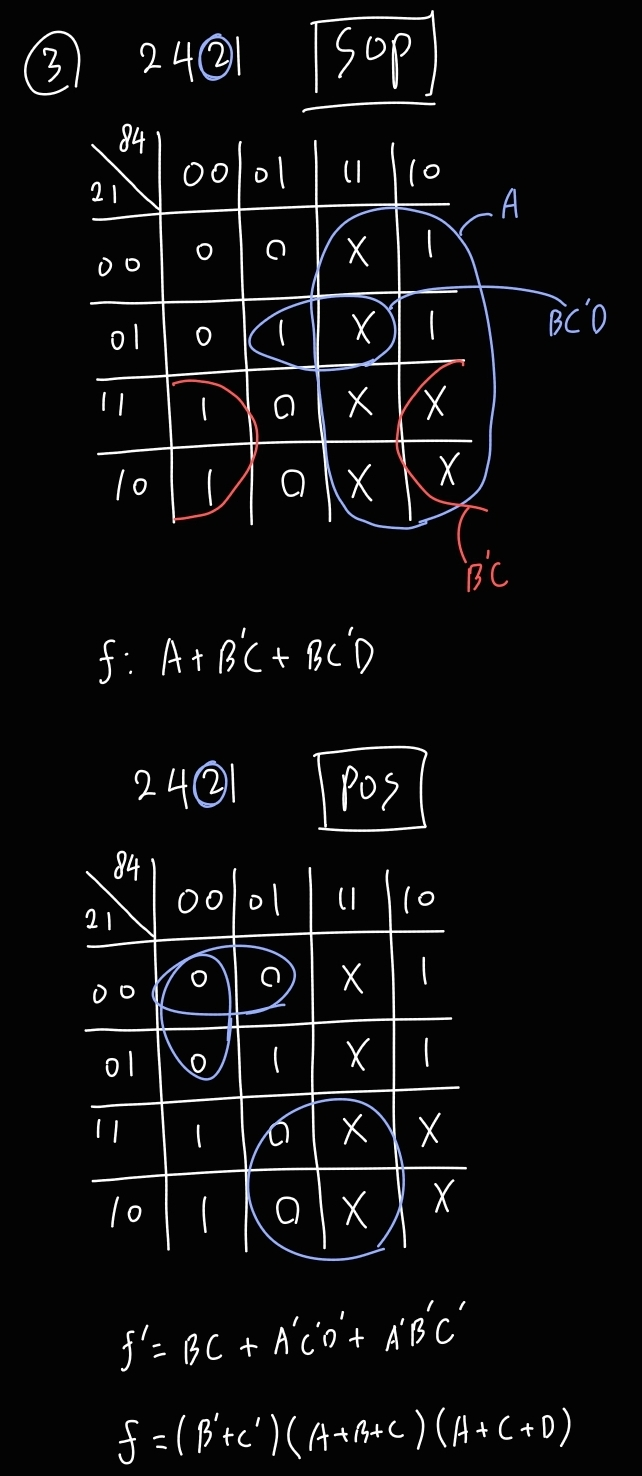 ③ 2421 SOP
84
21 00 01 11 10
A
00 0 0 X 1
01 0 1 X 1 BC'D
11 1 0 X X
10 1 0 X X
B'C
f: A + B'C + BC'D
2421 POS
84
21 00 01 11 10
00 0 0 X 1
01 0 1 X 1
11 1 0 X X
10 1 0 X X
f' = BC + A'C'D' + A'B'C'
f = (B'+C')(A+B+C)(A+C+D)